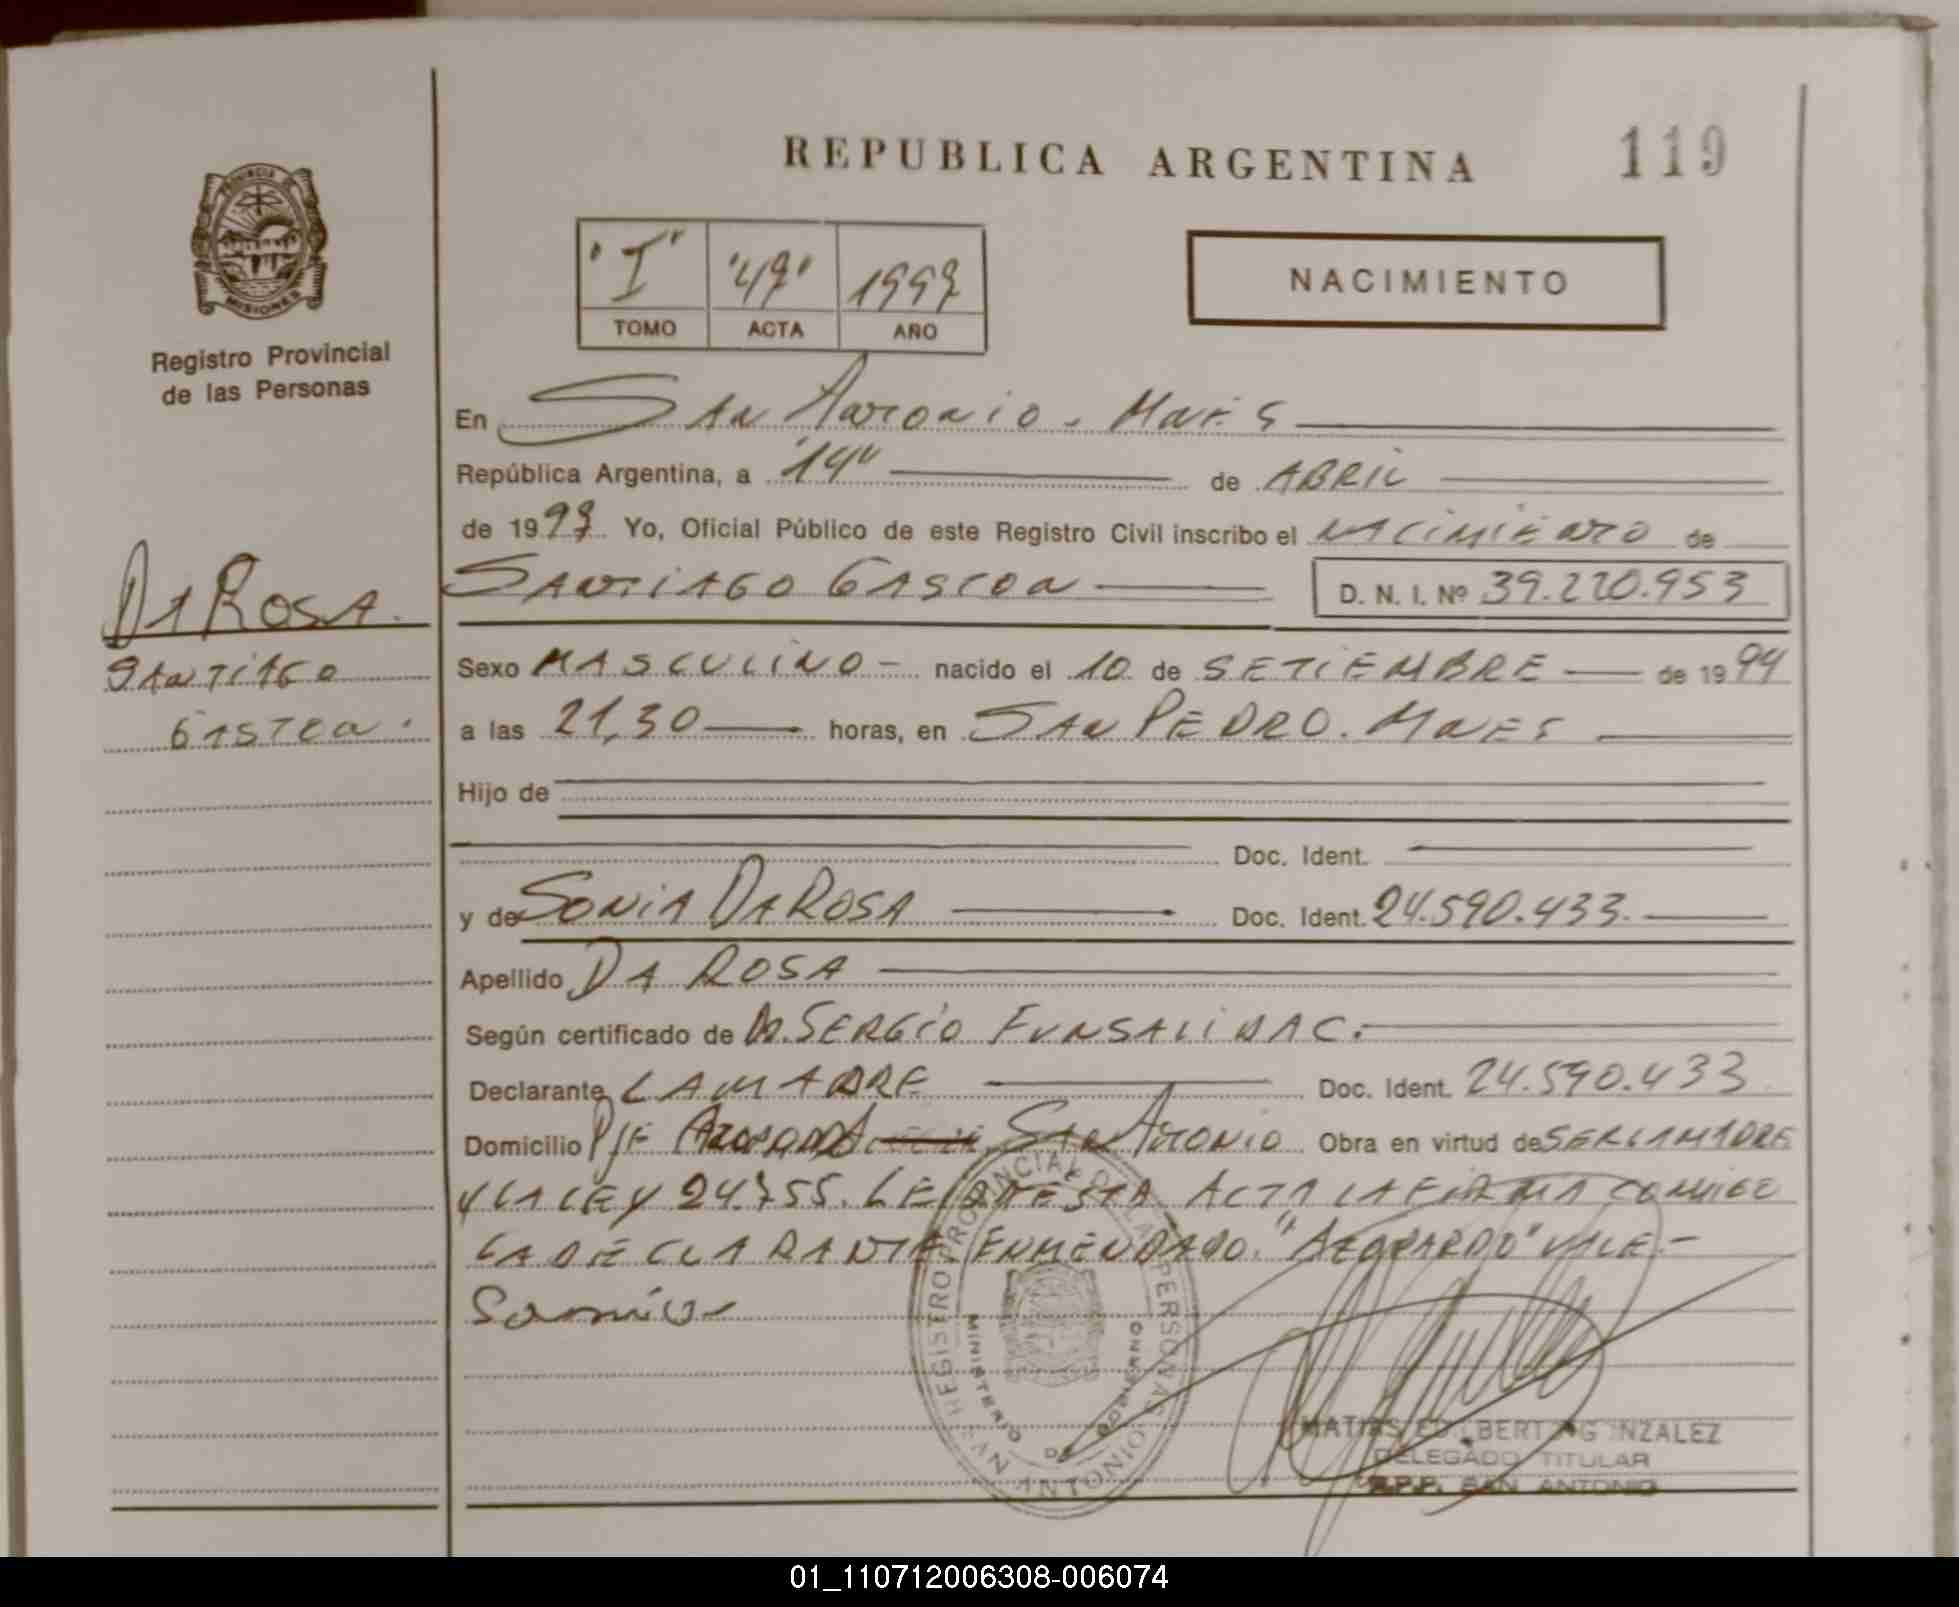 REPUBLICA ARGENTINA
119
PROVINCIA DE
MISIONES
Registro Provincial
de las Personas
"I" "47" 1997
TOMO ACTA AÑO
NACIMIENTO
En San Antonio. Mnes
República Argentina, a "14" de ABRIL
de 1997 Yo, Oficial Público de este Registro Civil inscribo el nacimiento de
SANTIAGO GASTON D. N. I. Nº 39.220.953
DA ROSA.
SANTIAGO
GASTON.
Sexo MASCULINO - nacido el 10 de SETIEMBRE de 1994
a las 21,30 horas, en SAN PEDRO. Mnes
Hijo de
Doc. Ident.
y de SONIA DA ROSA Doc. Ident. 24.590.433.
Apellido DA ROSA
Según certificado de Dr. SERGIO
Declarante LA MADRE Doc. Ident. 24.590.433
Domicilio Pje AZOPARDO SAN ANTONIO Obra en virtud de SER LA MADRE
Y LA LEY 24.755. LEIDA ESTA ACTA LA FIRMA CONMIGO
LA DECLARANTE. ENMENDADO. "AZOPARDO" VALE.-
REGISTRO PROVINCIAL DE LAS PERSONAS
MINISTERIO DE GOBIERNO
SAN ANTONIO
GONZALEZ
DELEGADO TITULAR
R.P.P. SAN ANTONIO
01_110712006308-006074